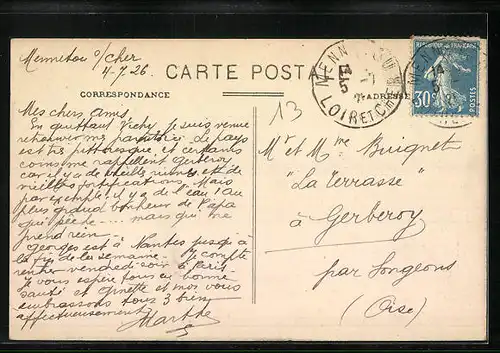 Mennetou s/cher
4-7.26
CARTE POSTALE
CORRESPONDANCE
ADRESSE
13
MENNETOU
14
5
LOIR ET CHER
REPUBLIQUE FRANÇAISE
30c
POSTES
Mes chers amis
En quittant Vichy je suis venue
retrouver ma famille. Le pays
est très pittoresque et certains
coins me rappellent Gerberoy
car il y a de vieilles ruines et de
vieilles fortifications. Mais
par exemple il y a de l'eau ! au
plus grand bonheur de Papa
qui pêche ... mais qui ne
prend rien.
Georges est à Nantes jusqu'à
la fin de la semaine. Je compte
rentrer vendredi soir à Paris
Je vous espère tous en bonne
santé et Ginette et moi vous
embrassons tous 3 bien
affectueusement
Marthe
Mr et Mme Buignet
"La Terrasse"
à Gerberoy
par Songeons
(Oise)